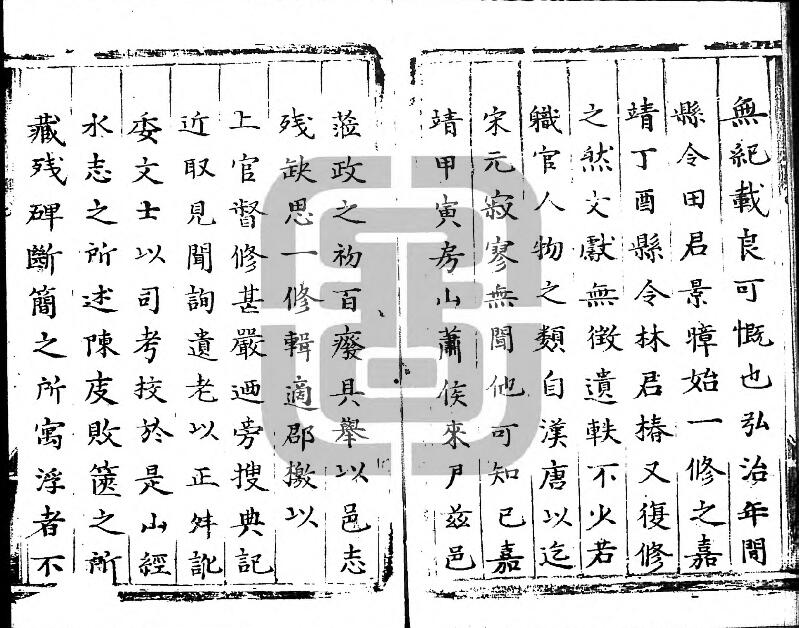 無紀載良可慨也弘治年間
縣令田君景㬀始一修之嘉
靖丁酉縣令林君椿又復修
之然文獻無徵遺軼不少若
職官人物之類自漢唐以迄
宋元寂寥無聞他可知已嘉
靖甲寅房山蕭侯來尹兹邑
蒞政之初百廢具舉以邑志
殘缺思一修輯適郡檄以
上官督修甚嚴迺旁搜典記
近取見聞詢遺老以正舛訛
委文士以司考挍於是山經
水志之所述陳庋敗篋之所
藏殘碑斷簡之所寓浮者不